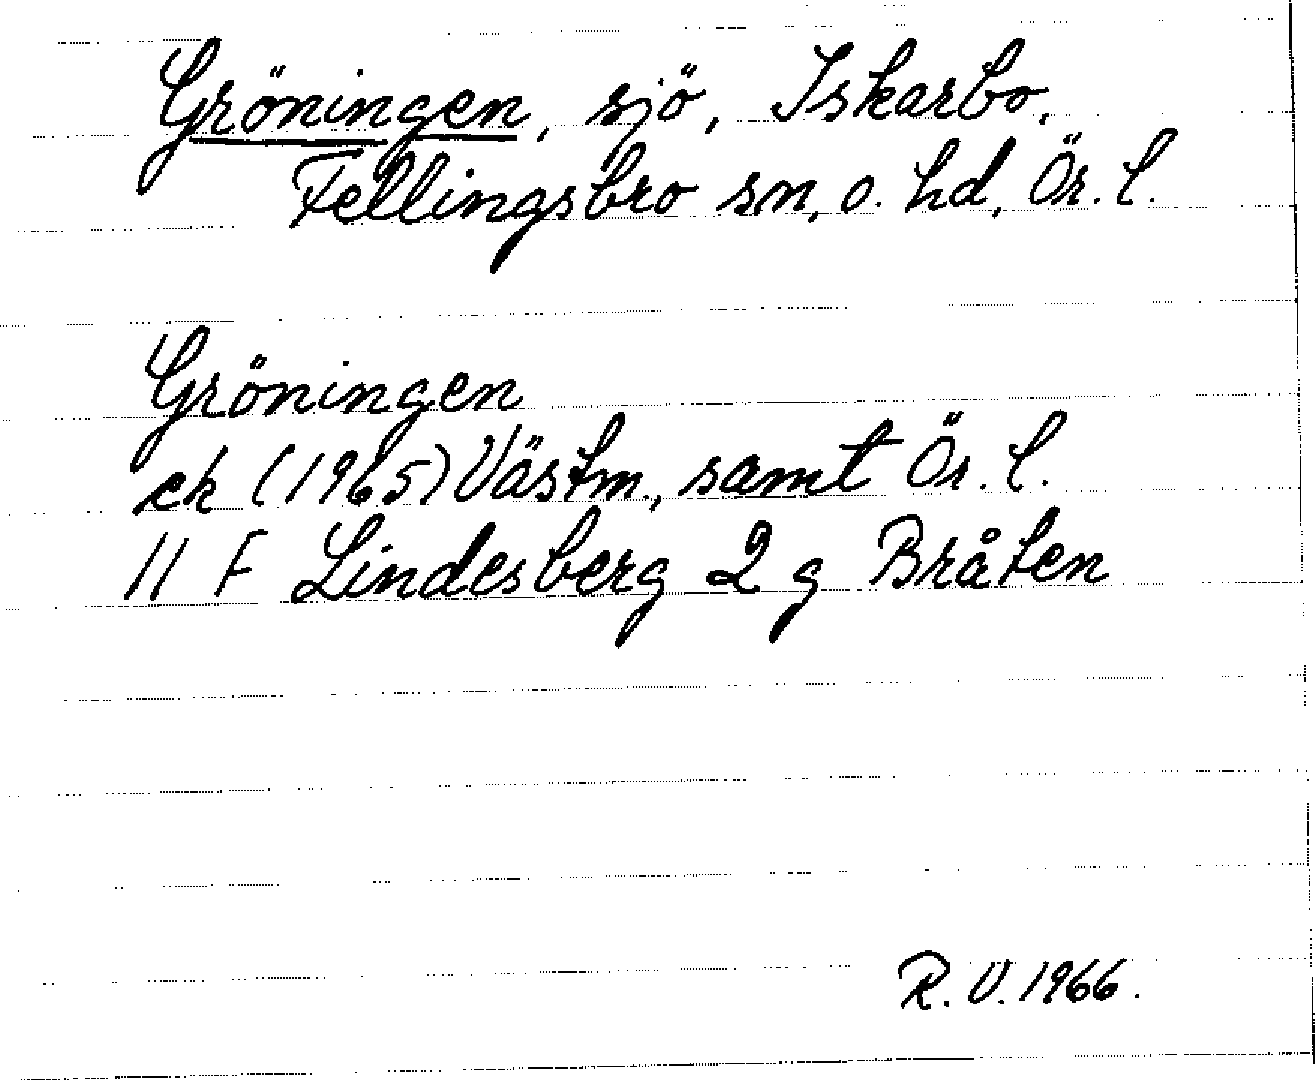 Gröningen, sjö, Iskarbo,
Fellingsbro sn, o. hd, Ör. l.
Gröningen
ek (1965) Västm., samt Ör. l.
11 F Lindesberg 2 g Bråten
R. V. 1966.